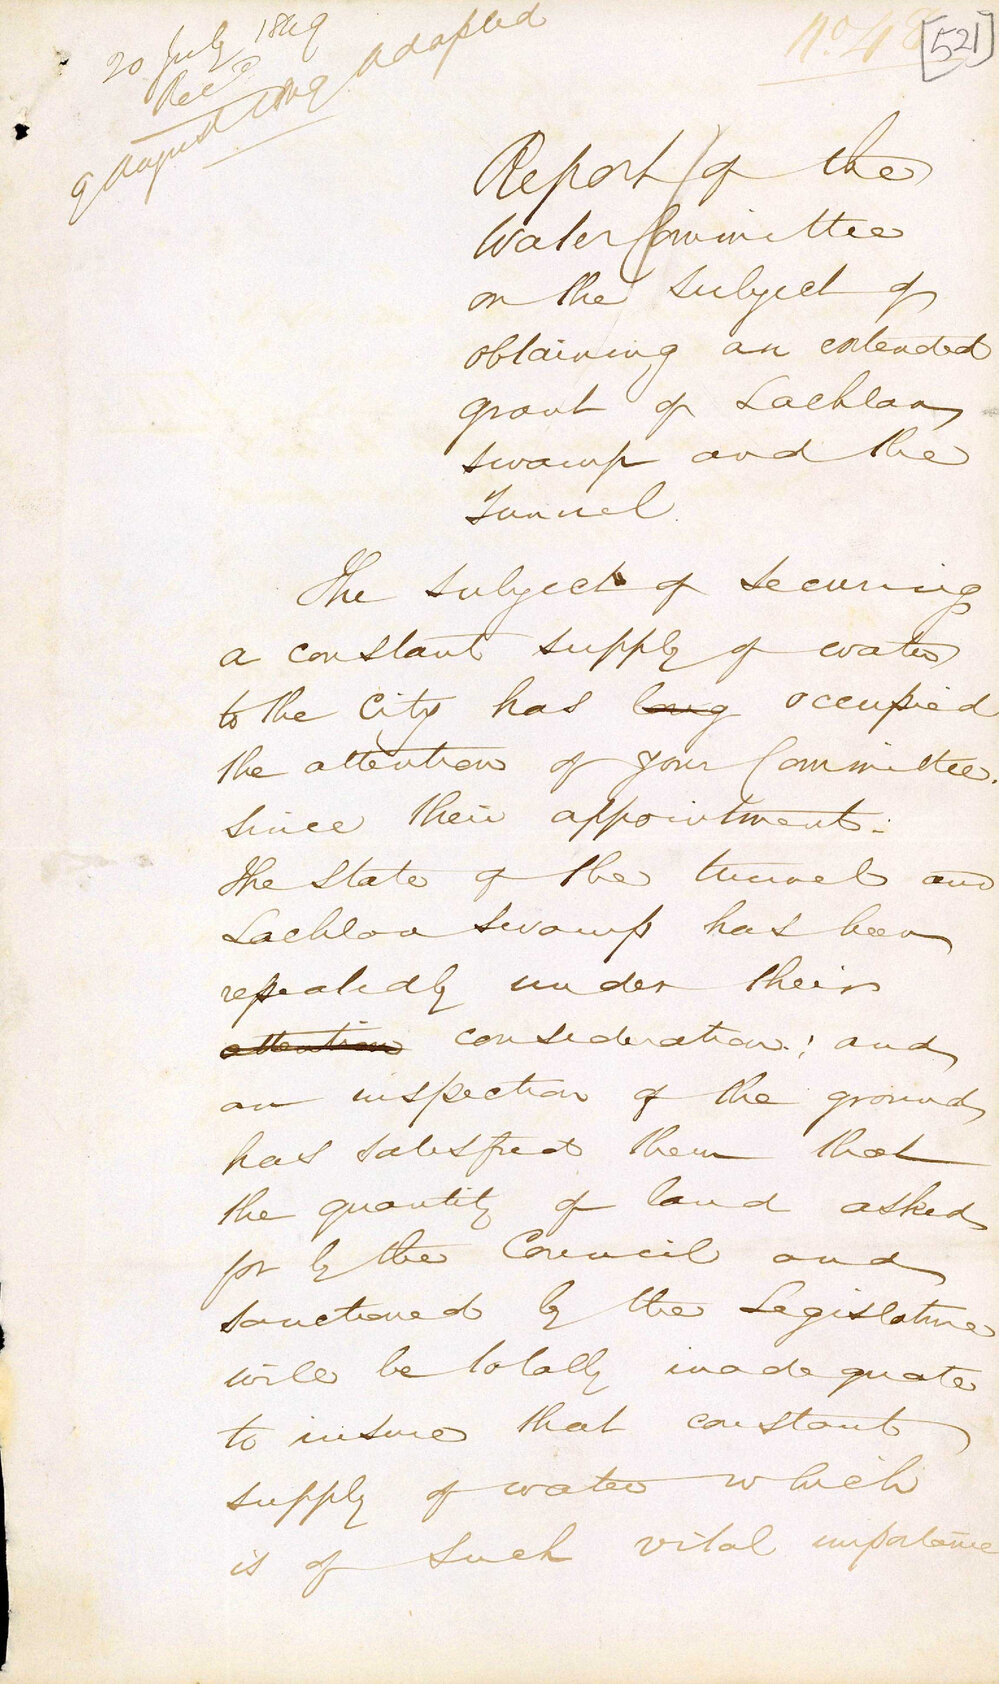 20 July 1849
Recd
9 August 1849 adopted
No. 48
[521]
Report of the
Water Committee
on the subject of
obtaining an extended
grant of Lachlan
swamp and the
Tunnel.
The subject of securing
a constant supply of water
to the City has long occupied
the attention of your Committee.
since their appointment.
The State of the tunnel and
Lachlan swamp has been
repeatedly under their
attention consideration; and
an inspection of the ground
has satisfied them that
the quantity of land asked
for by the Council and
sanctioned by the Legislature
will be totally inadequate
to insure that constant
supply of water which
is of such vital importance